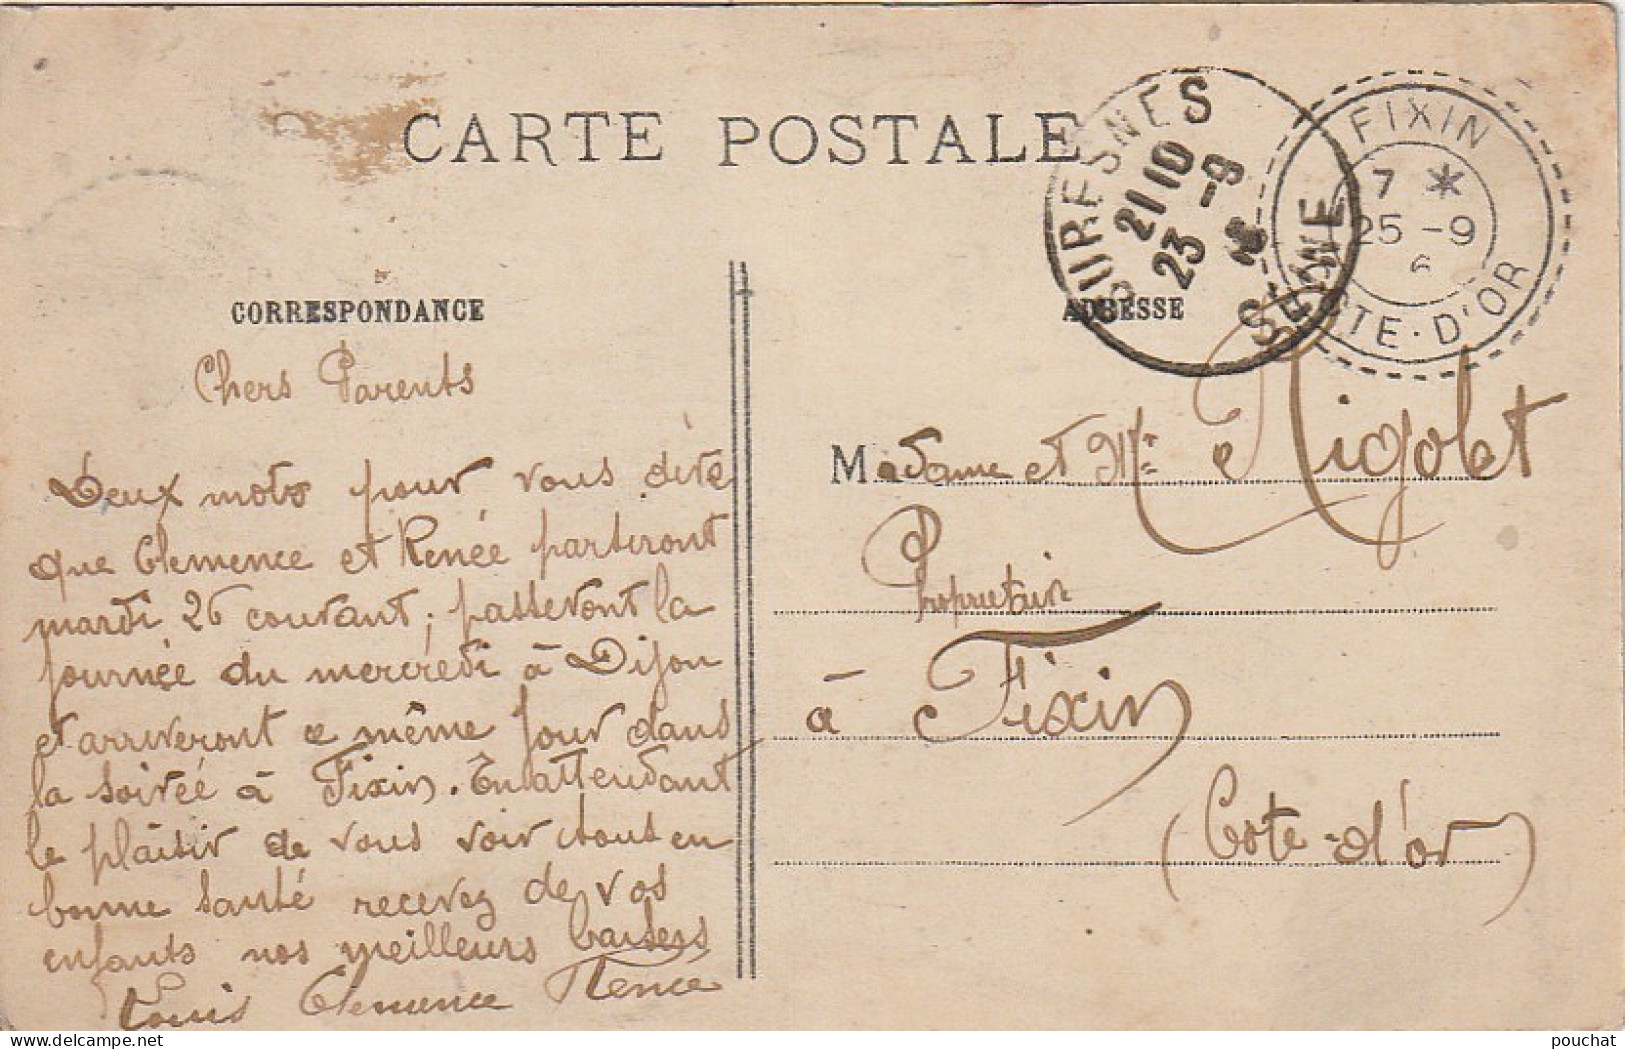 CARTE POSTALE
SURESNES
21 10
23 -9
SEINE
FIXIN
7 *
25 -9
6
CÔTE-D'OR
CORRESPONDANCE
ADRESSE
Chers Parents
Deux mots pour vous dire
que Clemence et Renée partiront
mardi 26 courant; passeront la
journée du mercredi à Dijon
et arriveront ce même jour dans
la soirée à Fixin. En attendant
le plaisir de vous voir tous en
bonne santé recevez de vos
enfants nos meilleurs baisers
Louis Clemence Renée
Madame et Mr Rigolet
Propriétaire
à Fixin
(Côte-d'or)
delcampe.net
pouchat